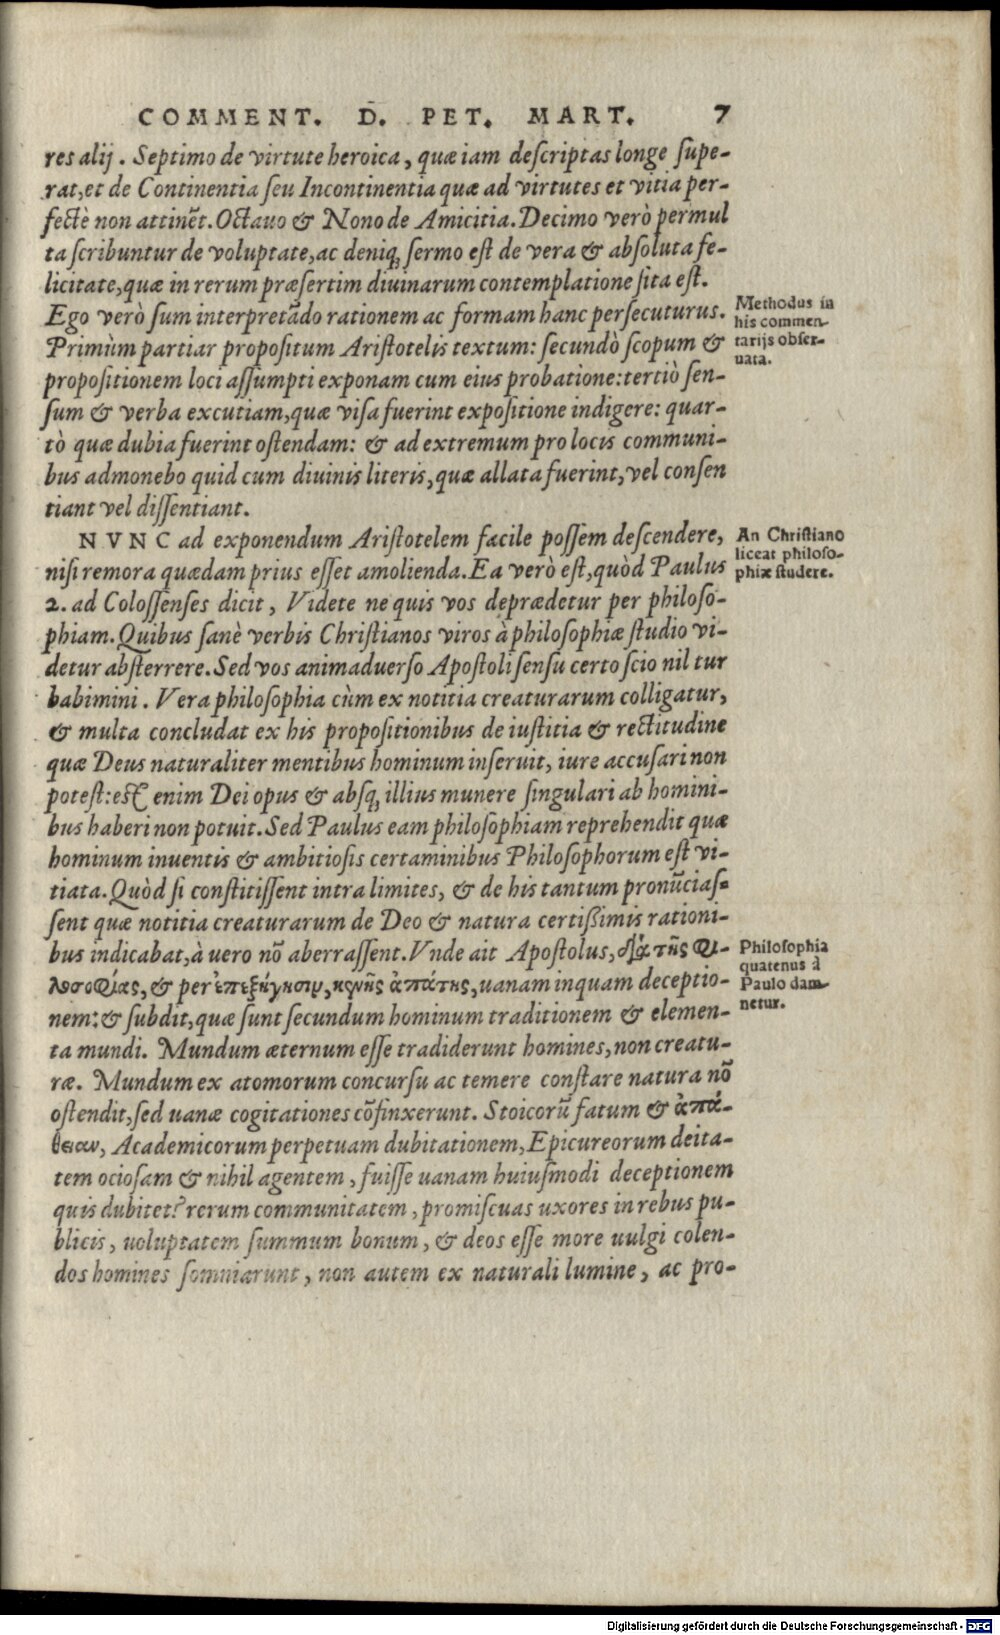 COMMENT. D. PET. MART. 7
res alij. Septimo de virtute heroica, quæ iam deſcriptas longe ſupe-
rat, et de Continentia ſeu Incontinentia quæ ad virtutes et vitia per-
fectè non attinẽt. Octauo & Nono de Amicitia. Decimo verò permul
ta ſcribuntur de voluptate, ac deniq; ſermo eſt de vera & abſoluta fe-
licitate, quæ in rerum præſertim diuinarum contemplatione ſita eſt.
Ego verò ſum interpretãdo rationem ac formam hanc perſecuturus.
Primùm partiar propoſitum Ariſtotelis textum: ſecundò ſcopum &
propoſitionem loci aſſumpti exponam cum eius probatione: tertiò ſen-
ſum & verba excutiam, quæ viſa fuerint expoſitione indigere: quar-
tò quæ dubia fuerint oſtendam: & ad extremum pro locis communi-
bus admonebo quid cum diuinis literis, quæ allata fuerint, vel conſen
tiant vel diſſentiant.
Methodus in
his commen-
tarijs obſer-
uata.
NVNC ad exponendum Ariſtotelem facile poſſem deſcendere,
niſi remora quædam prius eſſet amolienda. Ea verò eſt, quòd Paulus
2. ad Coloſſenſes dicit, Videte ne quis vos deprædetur per philoſo-
phiam. Quibus ſanè verbis Chriſtianos viros à philoſophiæ ſtudio vi-
detur abſterrere. Sed vos animaduerſo Apoſtoli ſenſu certo ſcio nil tur
babimini. Vera philoſophia cùm ex notitia creaturarum colligatur,
& multa concludat ex his propoſitionibus de iuſtitia & rectitudine
quæ Deus naturaliter mentibus hominum inſeruit, iure accuſari non
poteſt: eſt enim Dei opus & abſq; illius munere ſingulari ab homini-
bus haberi non potuit. Sed Paulus eam philoſophiam reprehendit quæ
hominum inuentis & ambitioſis certaminibus Philoſophorum eſt vi-
tiata. Quòd ſi conſtitiſſent intra limites, & de his tantum pronũciaſ-
ſent quæ notitia creaturarum de Deo & natura certißimis rationi-
bus indicabat, à uero nõ aberraſſent. Vnde ait Apoſtolus, διὰ τῆς φι-
λοσοφίας, & per ἐπεξήγησιν, κενῆς ἀπάτης, uanam inquam deceptio-
nem: & ſubdit, quæ ſunt ſecundum hominum traditionem & elemen-
ta mundi. Mundum æternum eſſe tradiderunt homines, non creatu-
ræ. Mundum ex atomorum concurſu ac temere conſtare natura nõ
oſtendit, ſed uanæ cogitationes cõfinxerunt. Stoicorũ fatum & ἀπά-
θειαν, Academicorum perpetuam dubitationem, Epicureorum deita-
tem ocioſam & nihil agentem, fuiſſe uanam huiuſmodi deceptionem
quis dubitet? rerum communitatem, promiſcuas uxores in rebus pu-
blicis, uoluptatem ſummum bonum, & deos eſſe more uulgi colen-
dos homines ſomniarunt, non autem ex naturali lumine, ac pro-
An Chriſtiano
liceat philoſo-
phiæ ſtudere.
Philoſophia
quatenus à
Paulo dam-
netur.
Digitalisierung gefördert durch die Deutsche Forschungsgemeinschaft - DFG